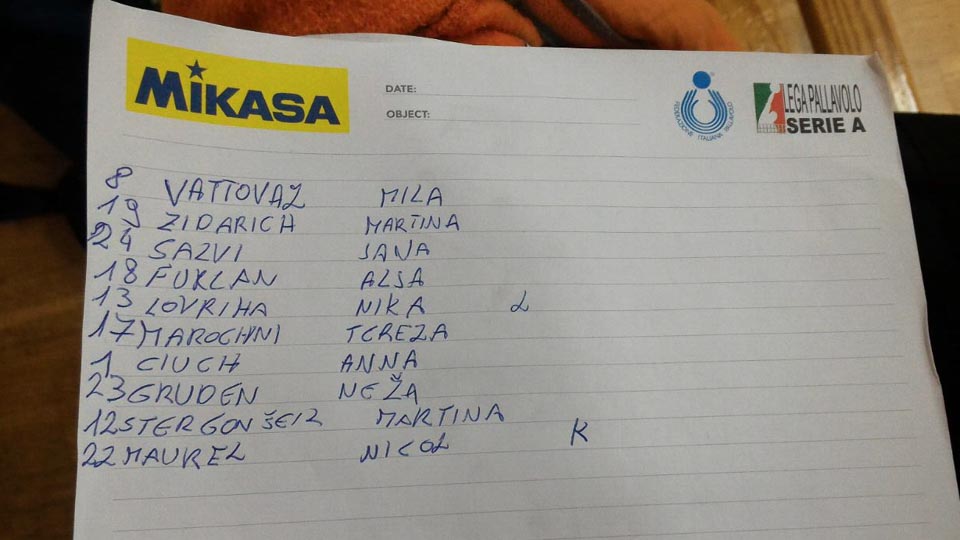 MIKASA
DATE:
OBJECT:
FEDERAZIONE ITALIANA PALLAVOLO
LEGA PALLAVOLO
SERIE A
8 VATTOVAZ MILA
19 ZIDARICH MARTINA
24 SAZVI JANA
18 FUKLAN ALJA
13 LOVRIHA NIKA L
17 MAROCHINI TEREZA
1 CIUCH ANNA
23 GRUDEN NEŽA
12 STERGONŠEK MARTINA
22 MAUREL NICOL K